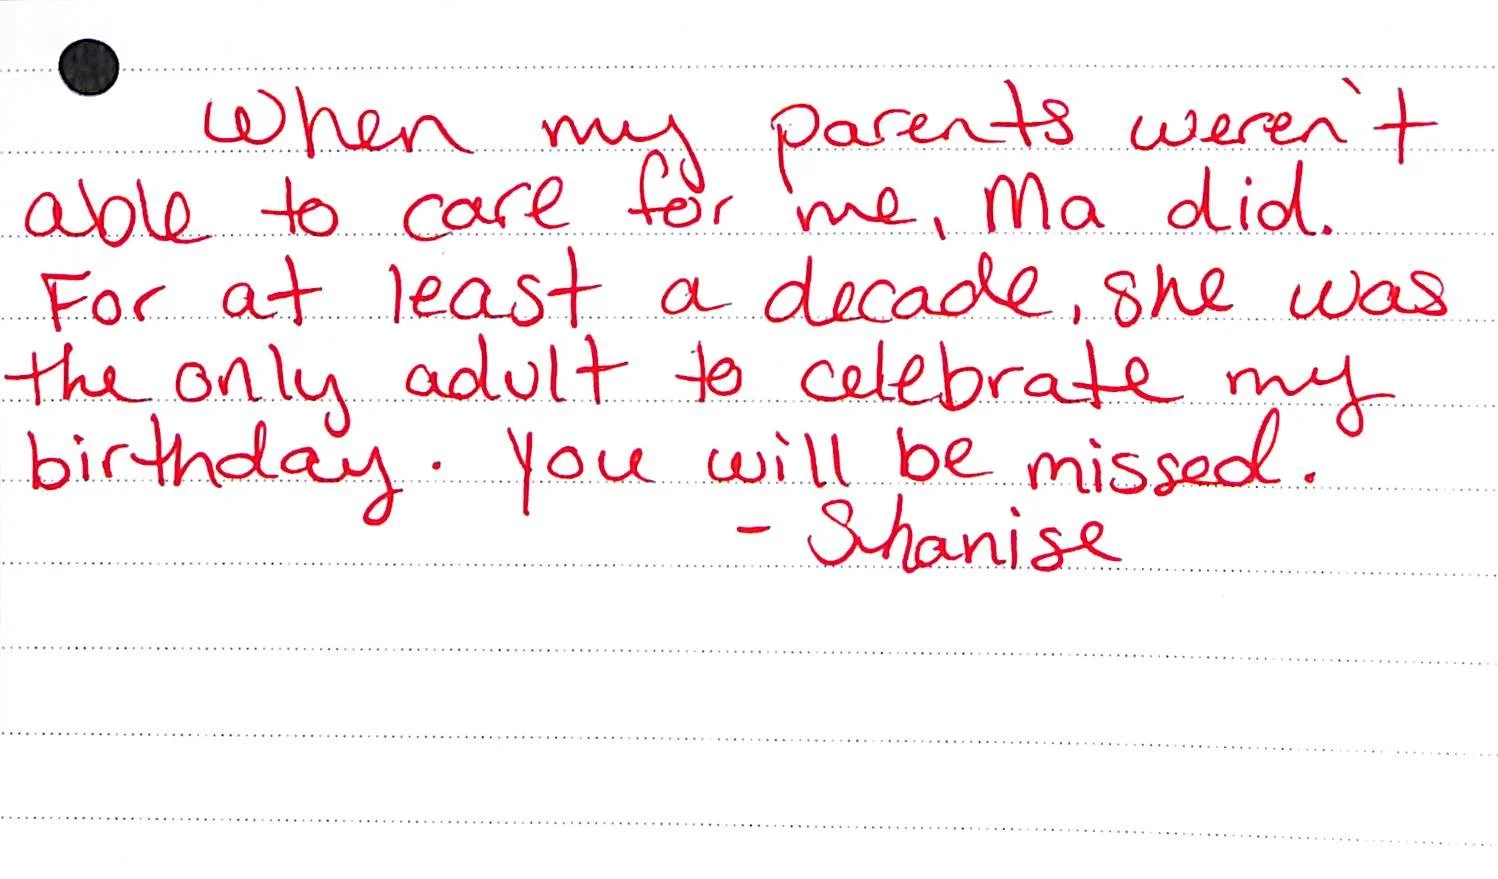 When my parents weren't
able to care for me, Ma did.
For at least a decade, she was
the only adult to celebrate my
birthday. You will be missed.
- Shanise